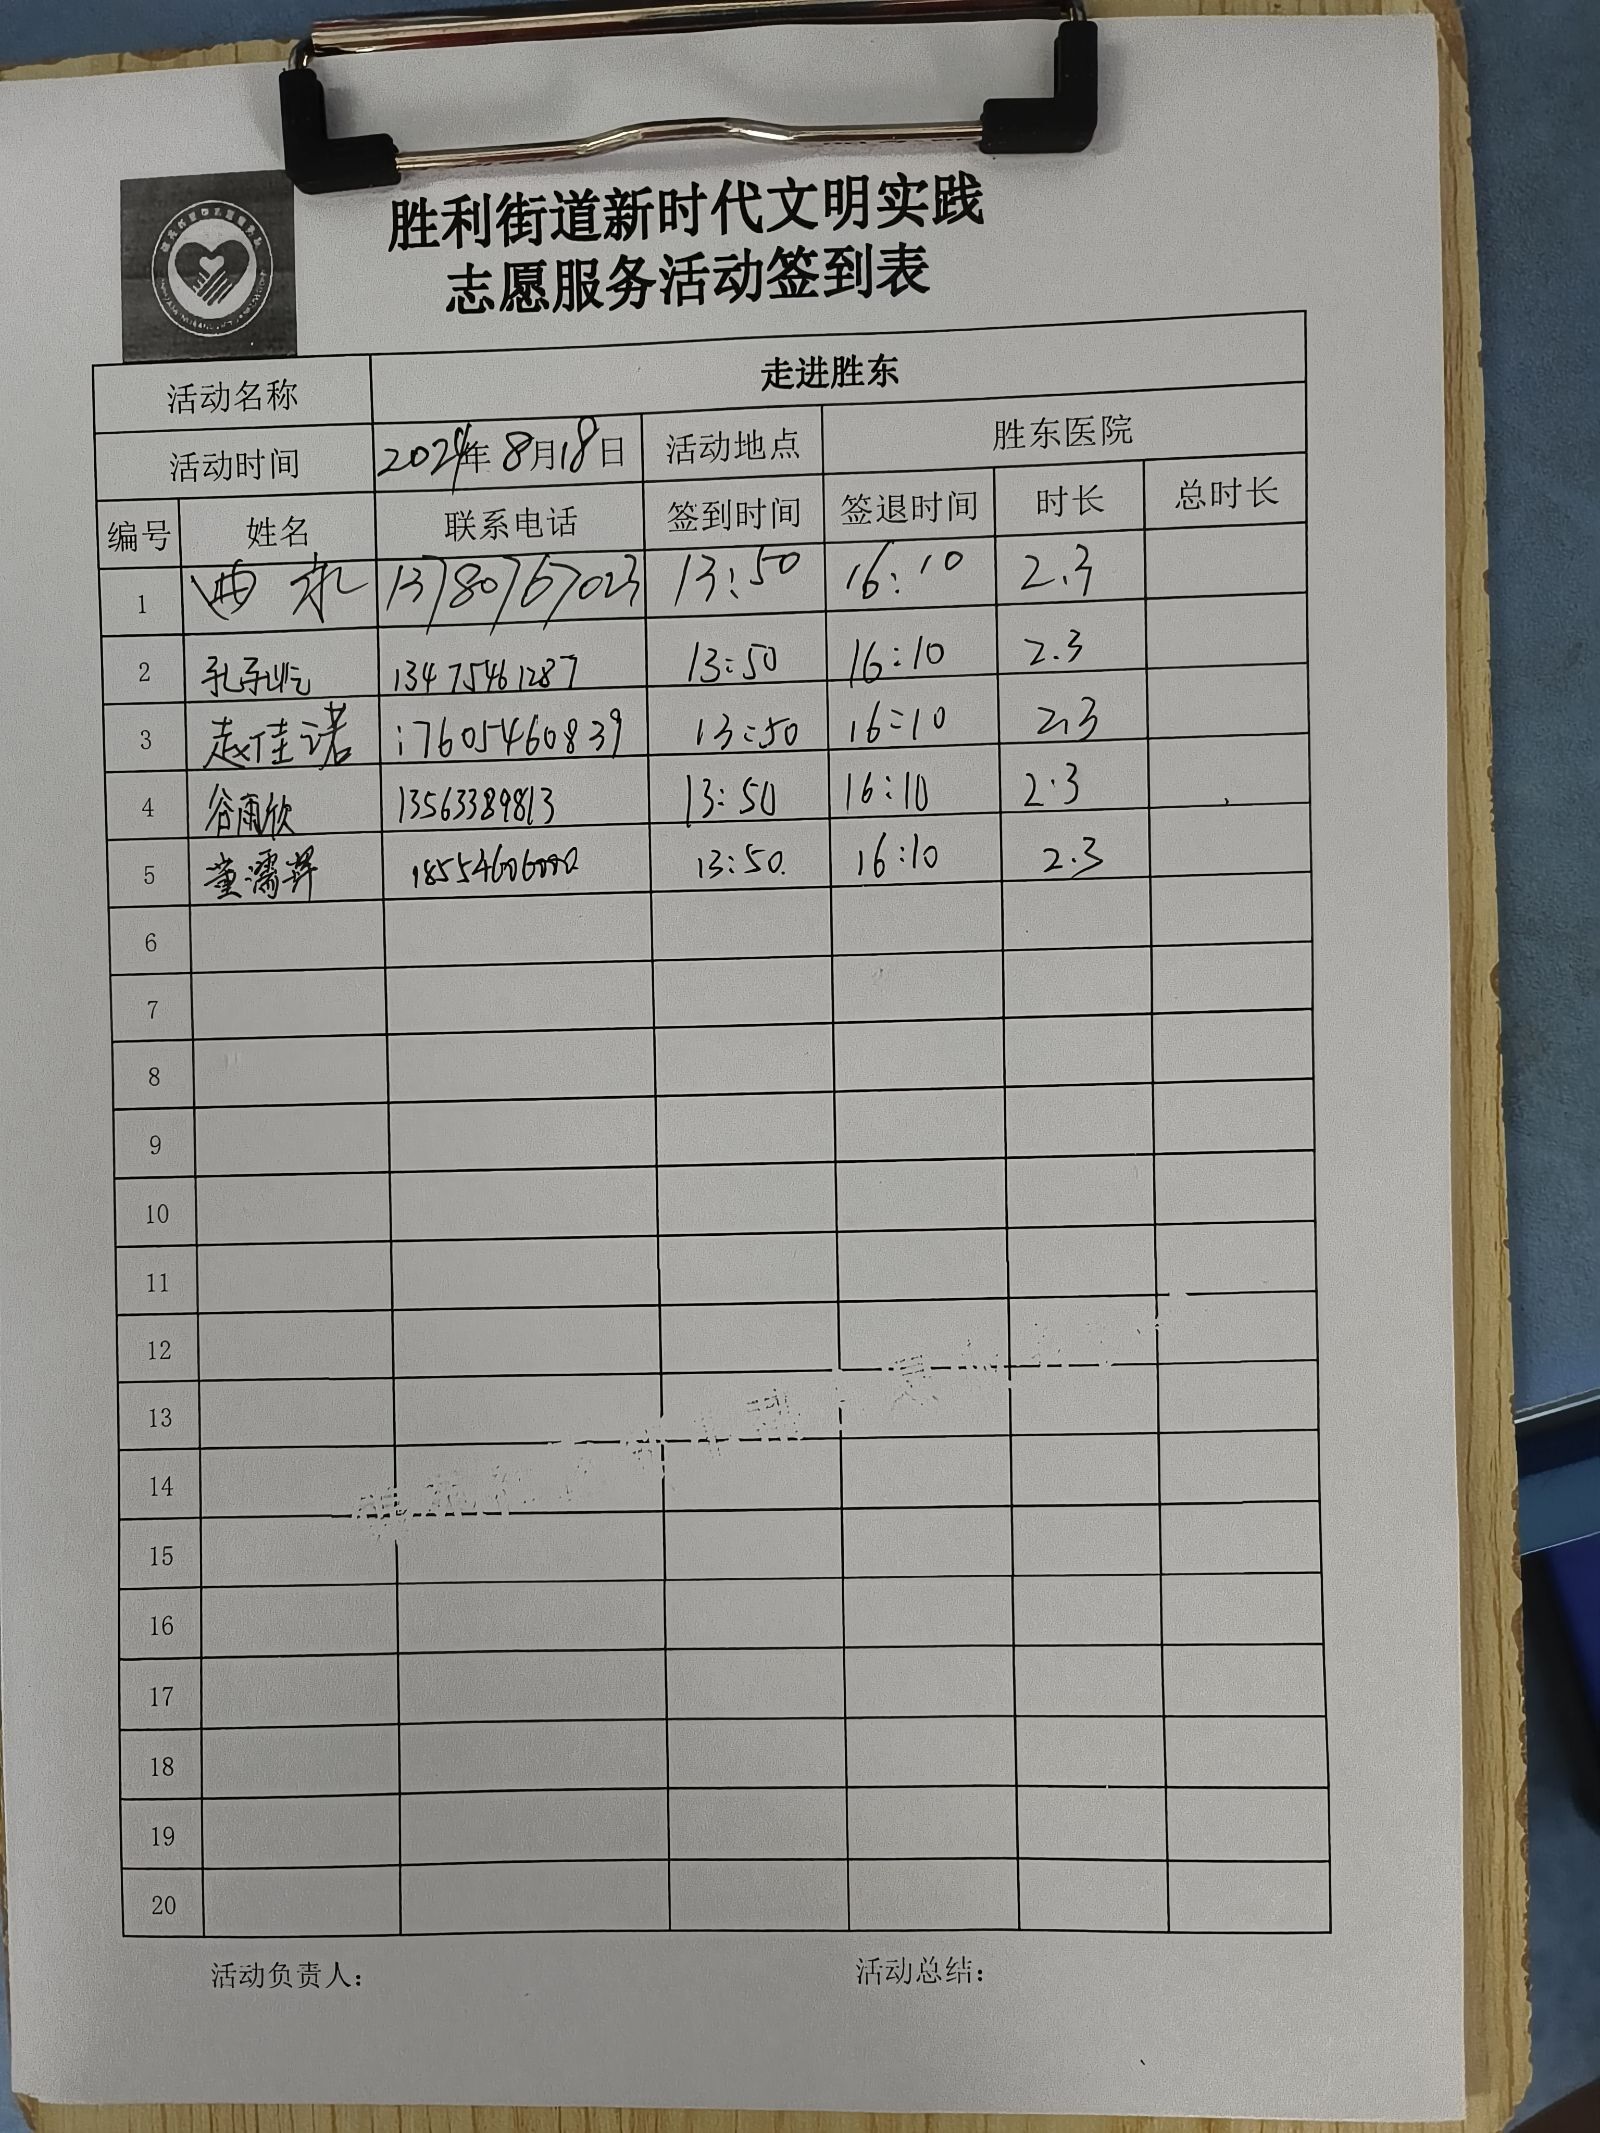 胜利街道新时代文明实践
志愿服务活动签到表
活动名称 走进胜东
活动时间 2024年8月18日 活动地点 胜东医院
编号 姓名 联系电话 签到时间 签退时间 时长 总时长
1 13780767023 13:50 16:10 2.3
2 孔子屹 13475461287 13:50 16:10 2.3
3 赵佳诺 17605460839 13:50 16:10 2.3
4 谷雨欣 13563389813 13:50 16:10 2.3
5 董濡 13:50 16:10 2.3
6
7
8
9
10
11
12
13
14
15
16
17
18
19
20
活动负责人： 活动总结：